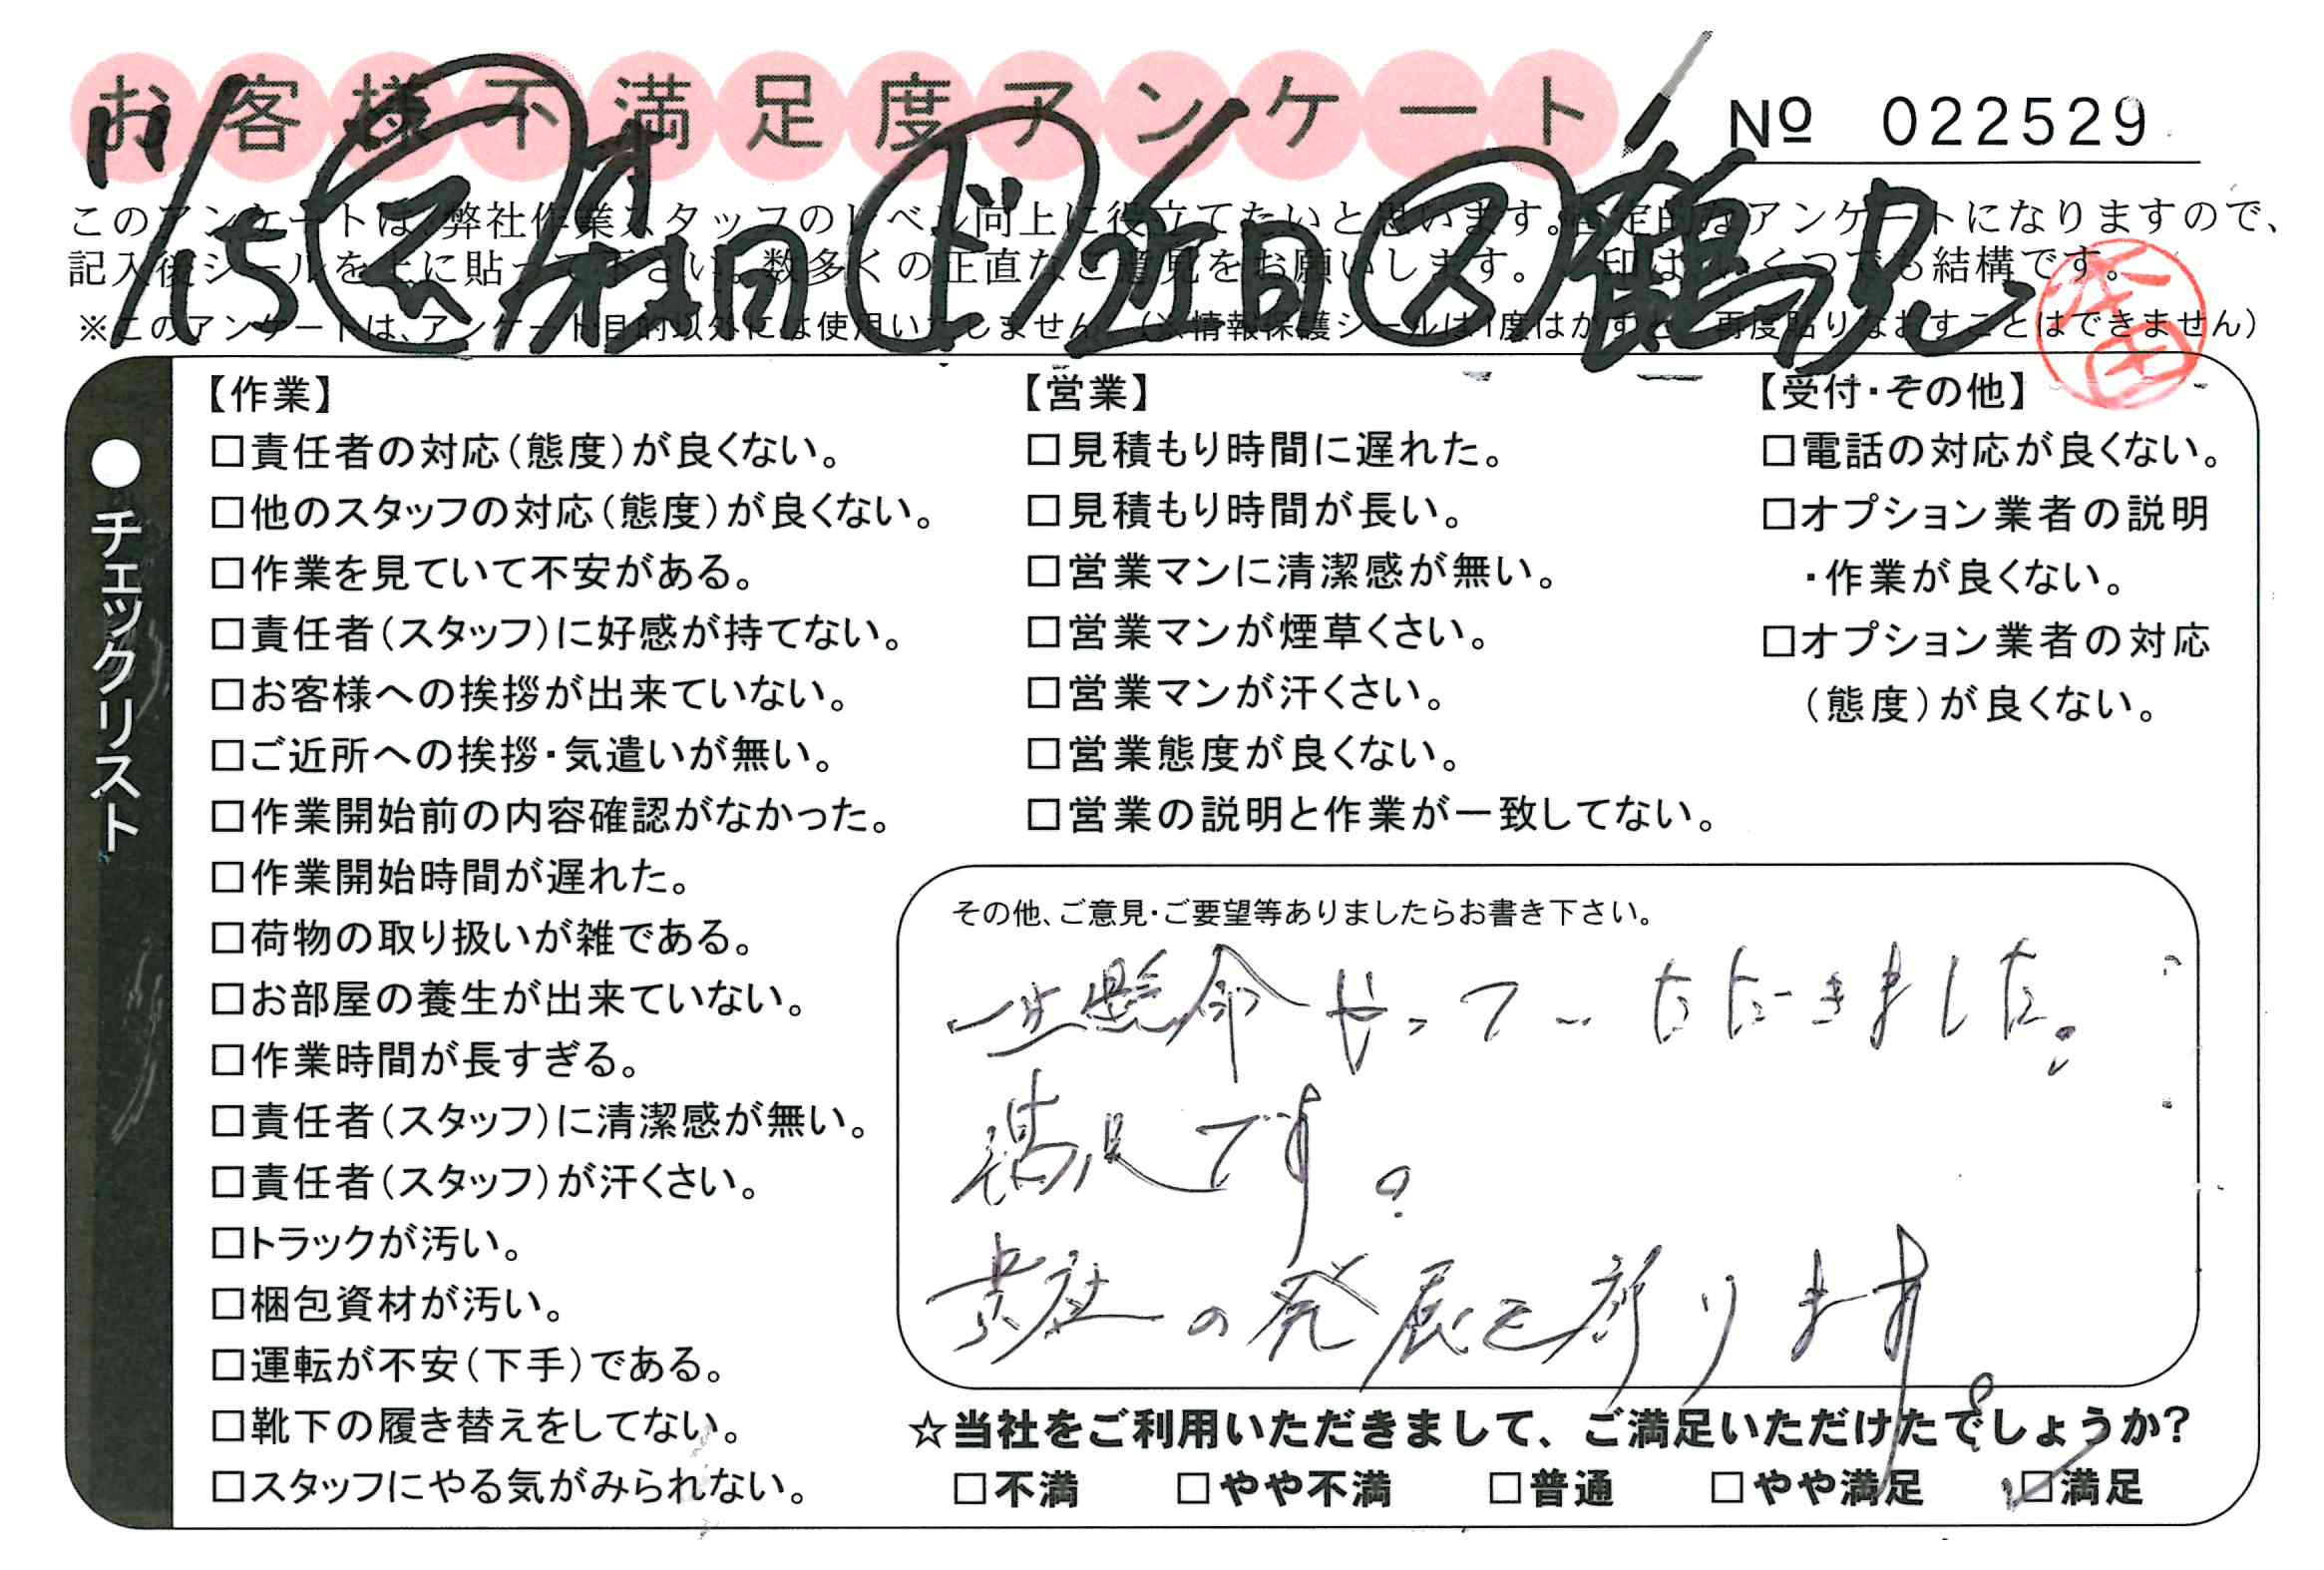 お客様不満足度アンケート
№ 022529
11/15
このアンケートは、弊社作業スタッフのレベル向上に役立てたいと思います。アンケートになりますので、
記入後シールを上に貼って下さい。数多くの正直なご意見をお願いします。 印はいくつでも結構です。
※このアンケートは、アンケート目的以外には使用いたしません。(※情報保護シールは1度はがすと、再度貼りなおすことはできません)
●チェックリスト
【作業】
□責任者の対応(態度)が良くない。
□他のスタッフの対応(態度)が良くない。
□作業を見ていて不安がある。
□責任者(スタッフ)に好感が持てない。
□お客様への挨拶が出来ていない。
□ご近所への挨拶・気遣いが無い。
□作業開始前の内容確認がなかった。
□作業開始時間が遅れた。
□荷物の取り扱いが雑である。
□お部屋の養生が出来ていない。
□作業時間が長すぎる。
□責任者(スタッフ)に清潔感が無い。
□責任者(スタッフ)が汗くさい。
□トラックが汚い。
□梱包資材が汚い。
□運転が不安(下手)である。
□靴下の履き替えをしてない。
□スタッフにやる気がみられない。
【営業】
□見積もり時間に遅れた。
□見積もり時間が長い。
□営業マンに清潔感が無い。
□営業マンが煙草くさい。
□営業マンが汗くさい。
□営業態度が良くない。
□営業の説明と作業が一致してない。
【受付・その他】
□電話の対応が良くない。
□オプション業者の説明
・作業が良くない。
□オプション業者の対応
(態度)が良くない。
その他、ご意見・ご要望等ありましたらお書き下さい。
一生懸命やっていただきました。
満足です。
貴社の発展を祈ります。
☆当社をご利用いただきまして、ご満足いただけたでしょうか?
□不満 □やや不満 □普通 □やや満足 ☑満足